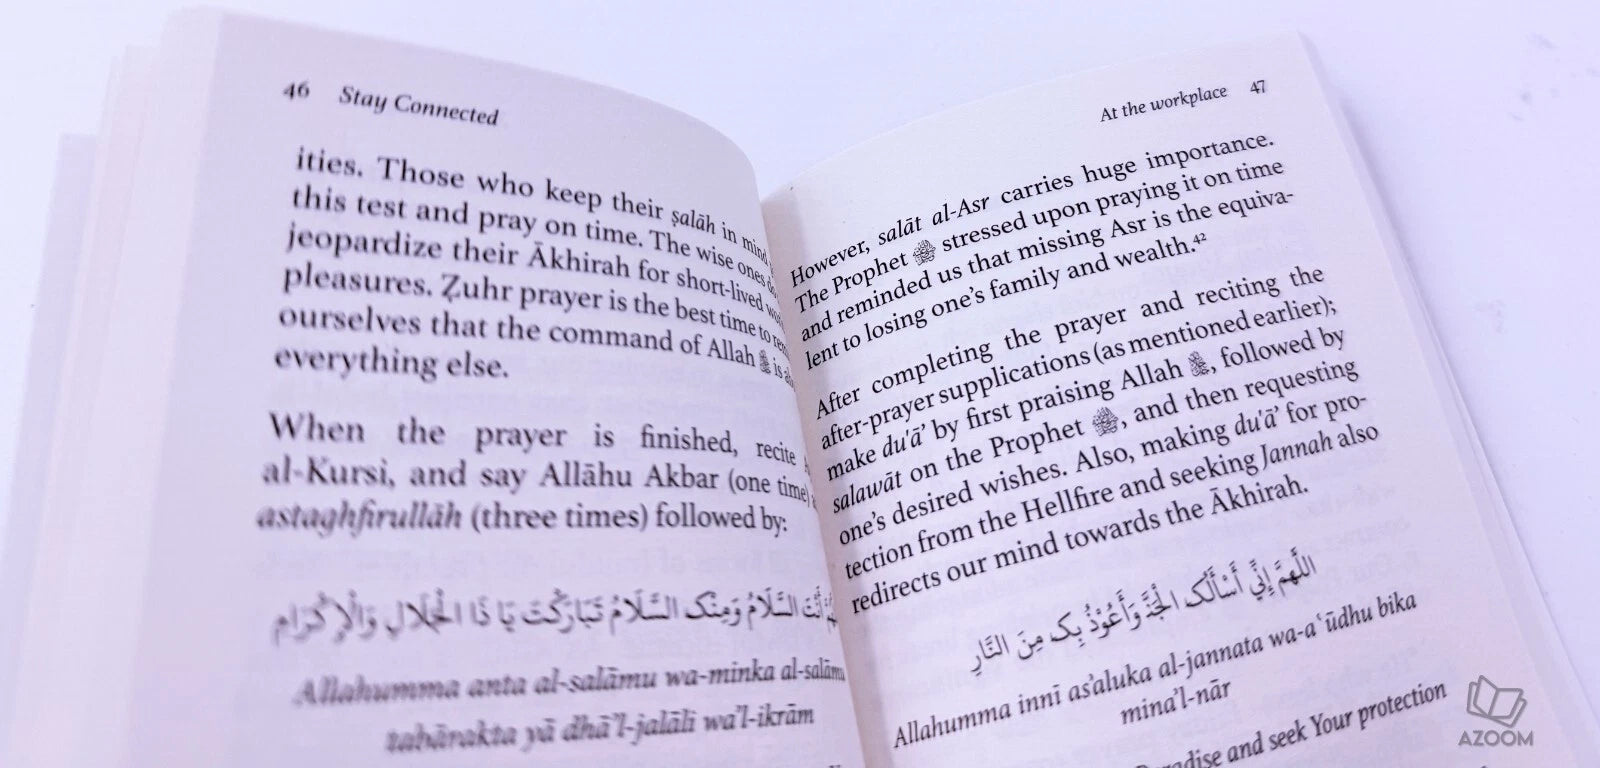 46 Stay Connected
ities. Those who keep their ṣalāh in mind
this test and pray on time. The wise ones
jeopardize their Ākhirah for short-lived
pleasures. Ẓuhr prayer is the best time to
ourselves that the command of Allah ﷻ is
everything else.
When the prayer is finished, recite
al-Kursi, and say Allāhu Akbar (one time)
astaghfirullāh (three times) followed by:
أَنْتَ السَّلَامُ وَمِنْكَ السَّلَامُ تَبَارَكْتَ يَا ذَا الْجَلَالِ وَالْإِكْرَامِ
Allahumma anta al-salāmu wa-minka al-salāmu
tabārakta yā dhā’l-jalāli wa’l-ikrām
At the workplace 47
However, salāt al-Asr carries huge importance.
The Prophet ﷺ stressed upon praying it on time
and reminded us that missing Asr is the equiva-
lent to losing one’s family and wealth.⁴²
After completing the prayer and reciting the
after-prayer supplications (as mentioned earlier);
make du'ā’ by first praising Allah ﷻ, followed by
salawāt on the Prophet ﷺ, and then requesting
one’s desired wishes. Also, making du'ā’ for pro-
tection from the Hellfire and seeking Jannah also
redirects our mind towards the Ākhirah.
اللَّهُمَّ إِنِّي أَسْأَلُكَ الْجَنَّةَ وَأَعُوْذُ بِكَ مِنَ النَّارِ
Allahumma innī as’aluka al-jannata wa-a‘ūdhu bika
mina’l-nār
and seek Your protection
AZOOM